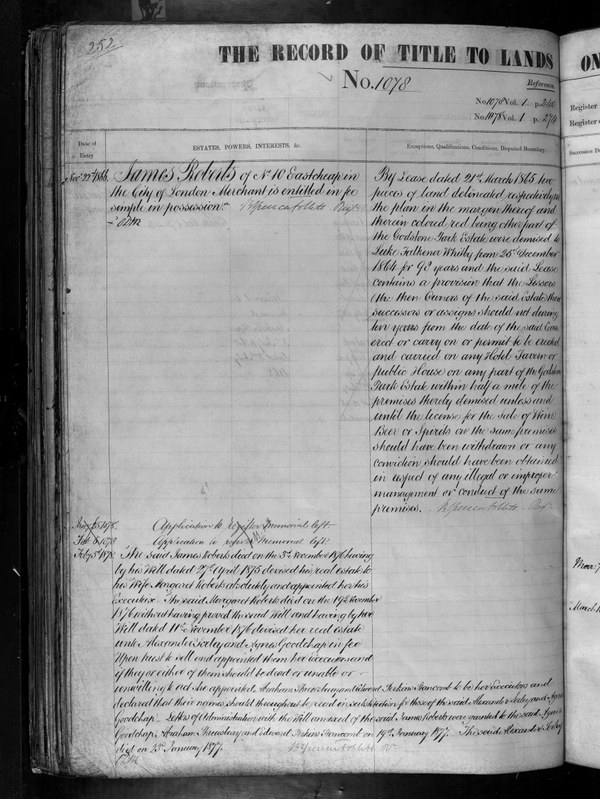 252
THE RECORD OF TITLE TO LANDS
No. 1078
Reference
No. 1078 Vol. 1 p. 274
Date of
Entry
ESTATES, POWERS, INTERESTS, &c.
Exceptions, Qualifications, Conditions, Disputed Boundary.
James Roberts of No 10 Eastcheap in
the City of London Merchant is entitled in fee
simple in possession.
By Lease dated 21st March 1865 two
pieces of land delineated respectively on
the plan in the margin thereof and
therein colored red being other part of
the Godstone Park Estate were demised to
Luke Falkener Whitby from 25th December
1864 for 98 years and the said Lease
contains a provision that the Lessors
(the then Owners of the said Estate) their
successors or assigns should not during
ten years from the date of the said
erect or carry on or permit to be erected
and carried on any Hotel Tavern or
public House on any part of the Godstone
Park Estate within half a mile of the
premises thereby demised unless and
until the license for the sale of Wine
Beer or Spirits on the same premises
should have been withdrawn or any
conviction should have been obtained
in respect of any illegal or improper
management or conduct of the same
premises.
Application to register Memorial left
Feb 6 1878 Application to Memorial left
Feby 5th 1878 The said James Roberts died on the 3rd November 1876 having
by his Will dated 27th April 1875 devised his real estate to
his Wife Margaret Roberts absolutely and appointed her his
Executrix The said Margaret Roberts died on the 19th November
1876 without having proved the said Will and having by her
Will dated 11th November 1876 devised her real estate
unto Alexander Sorley and Agnes Goodchap in fee
Upon trust to sell and appointed them her executors and
if they or either of them should be dead or unable or
unwilling to act she appointed Abraham Shrewsbury and Edward Perkins Stancomb to be her Executors and
declared that their names should throughout be read in substitution for those of the said Alexander Sorley and Agnes
Goodchap. Letters of Administration with the Will annexed of the said James Roberts were granted to the said Agnes
Goodchap, Abraham Shrewsbury and Edward Perkins Stancomb on 19th January 1877. The said Alexander Sorley
died on 23rd January 1877.
ON
Register
Register